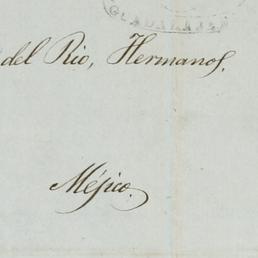 GUADALAJARA
del Rio, Hermanos.
Méjico.